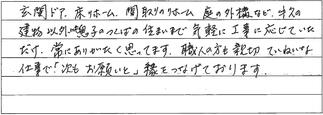 玄関ドア、床リホーム、間取りのリホーム 庭の外構など、本人の
建物以外に息子のつくばの住まいまで気軽に工事に応じていた
だけ、常にありがたく思ってます。職人の方も親切 ていねいな
仕事で「次もお願いと」縁をつなげております。